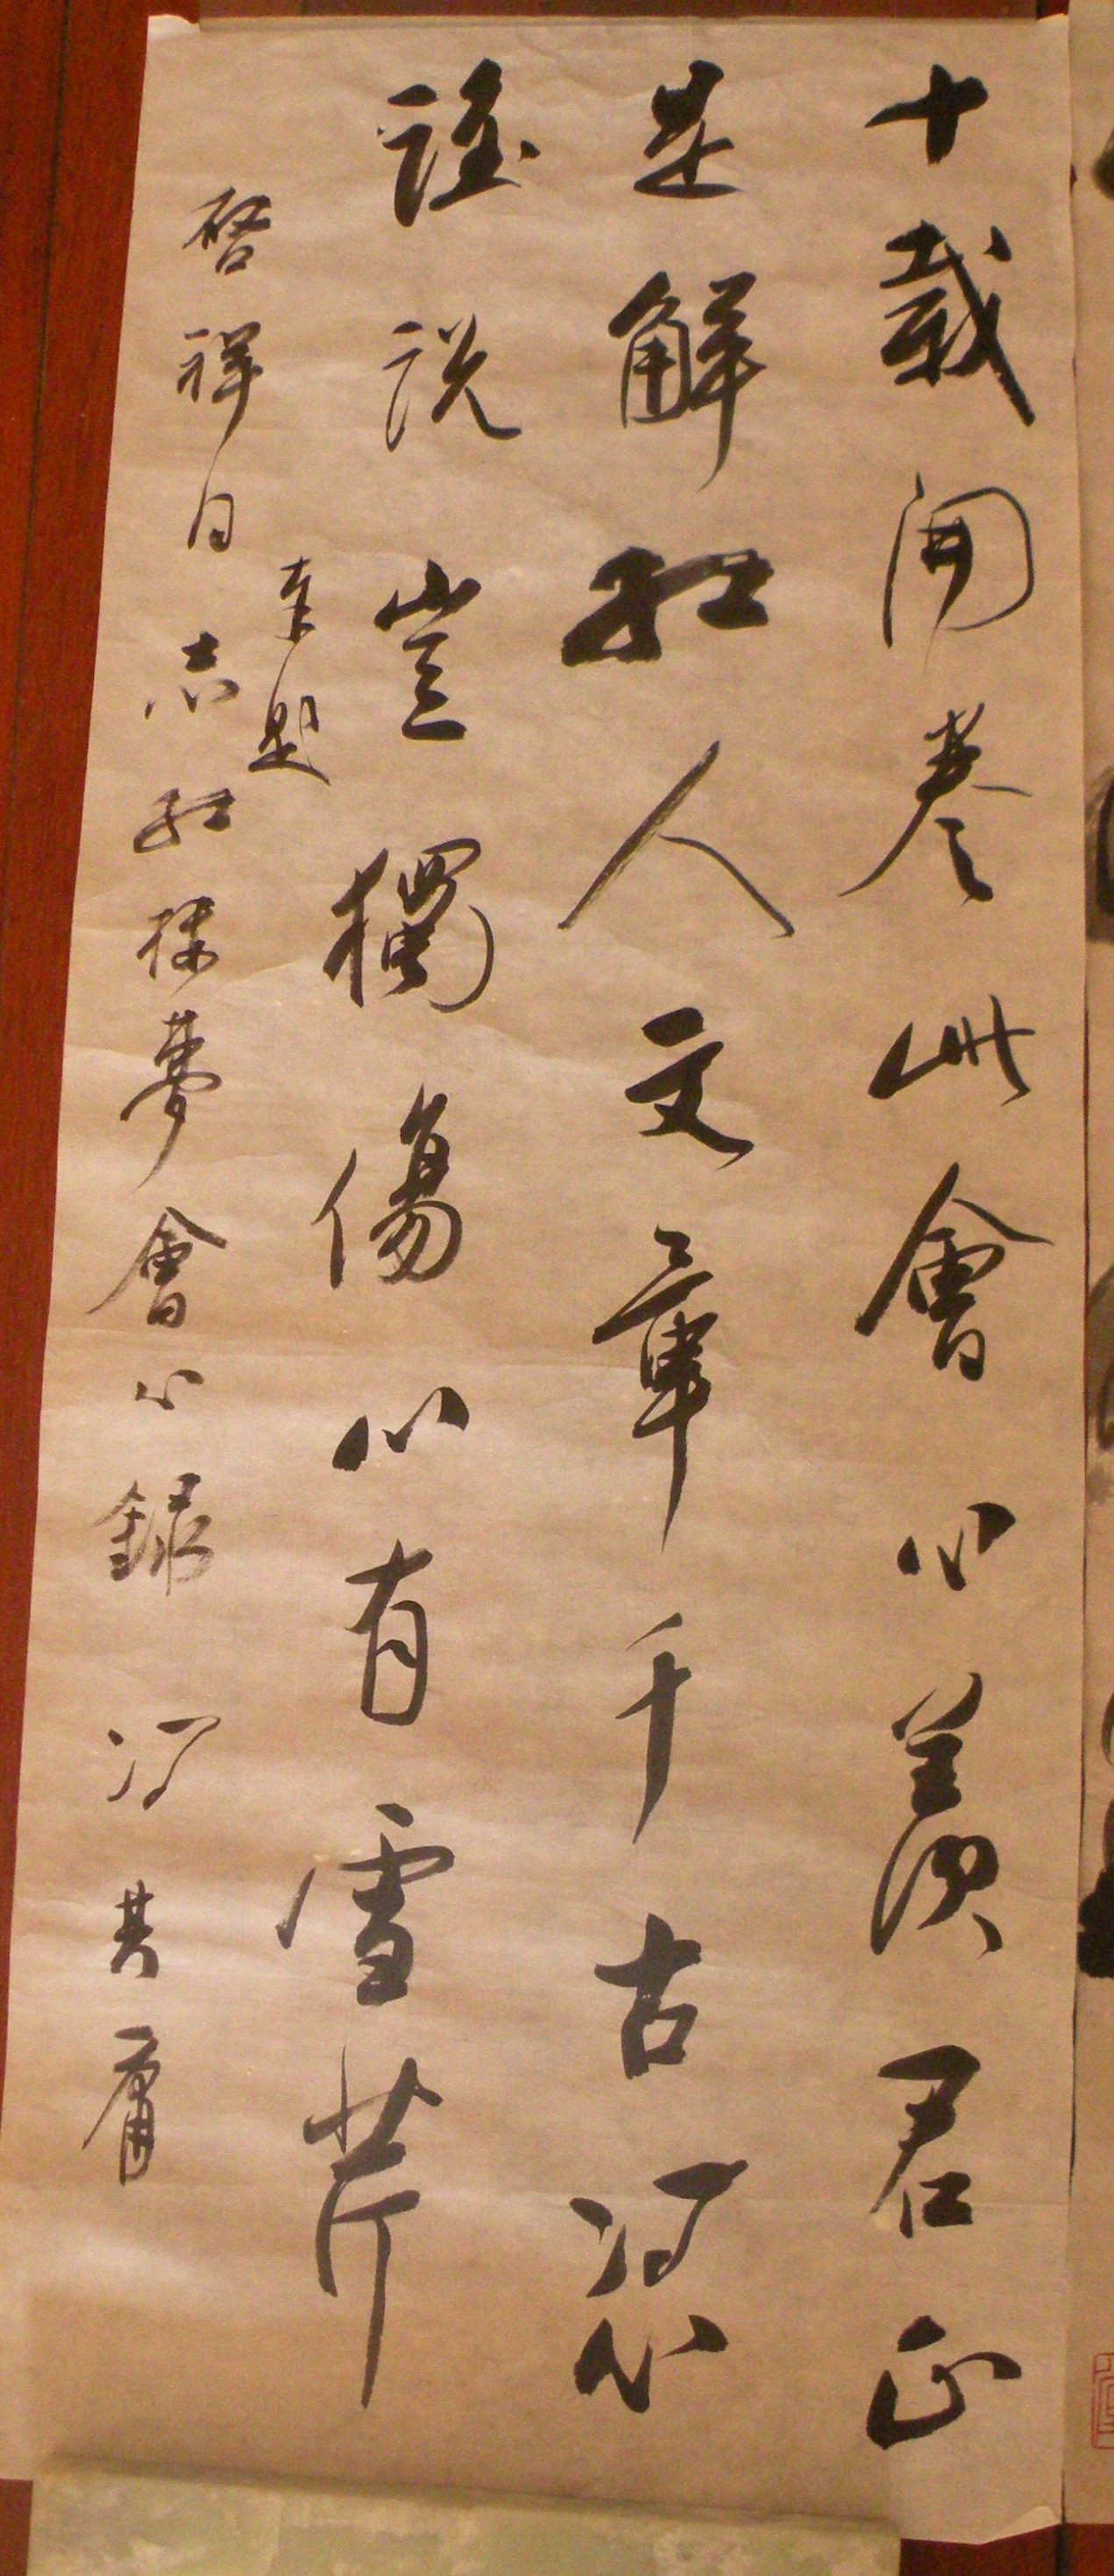 十載開卷此會心羨君正
是解紅人文章千古憑
誰說豈獨傷心有雪芹
奉題
啓祥同志紅樓夢會心錄 馮其庸